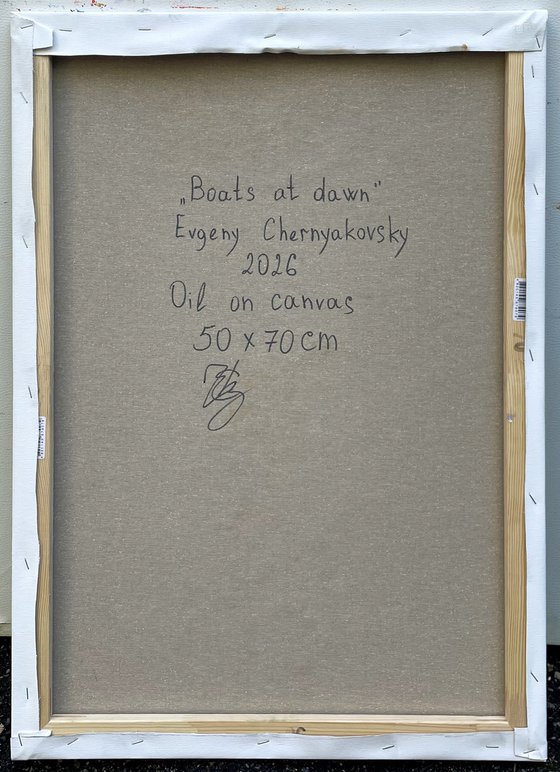 „Boats at dawn"
Evgeny Chernyakovsky
2026
Oil on canvas
50 x 70 cm